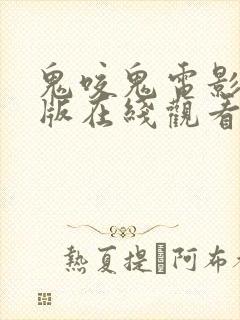 鬼咬鬼電影
版在綫觀看
熱夏提�阿布